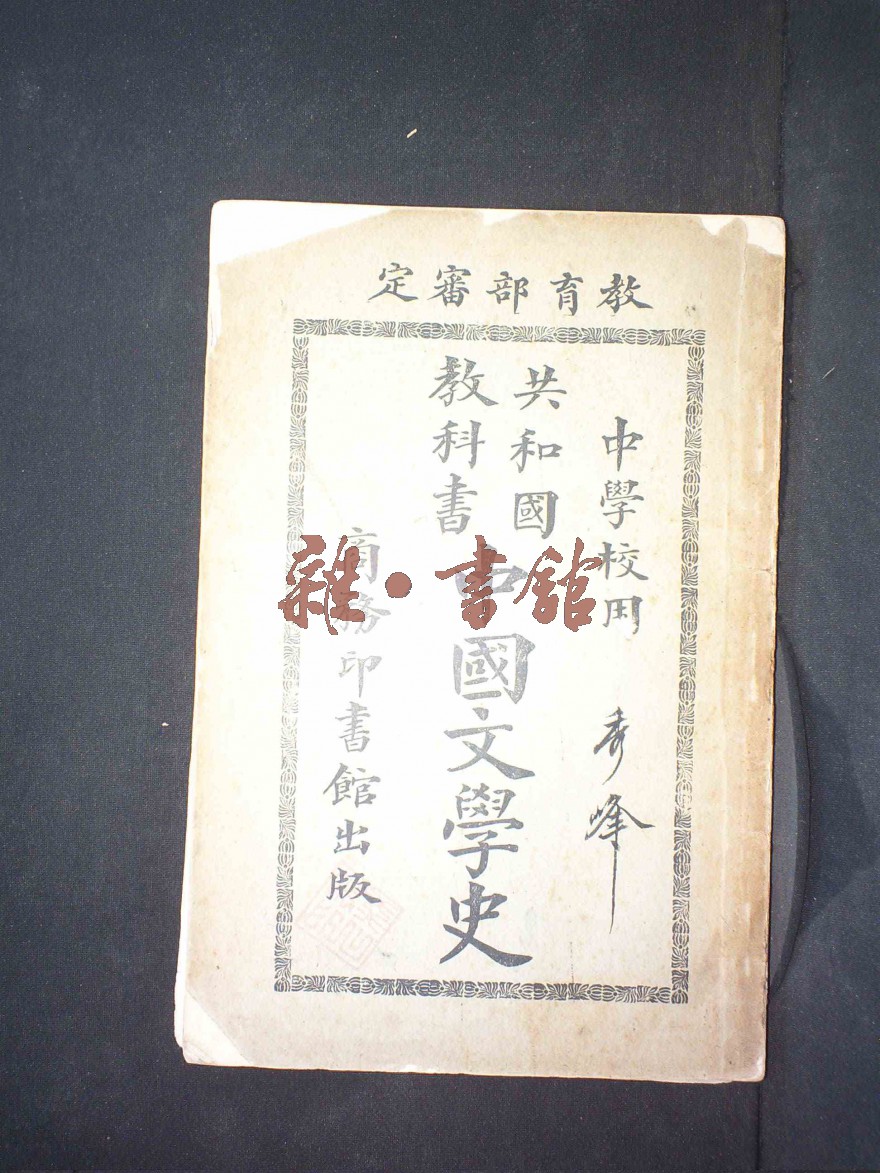 教育部審定
中學校用
秀峰
共和國
教科書
中國文學史
商務印書館出版
雜·書館